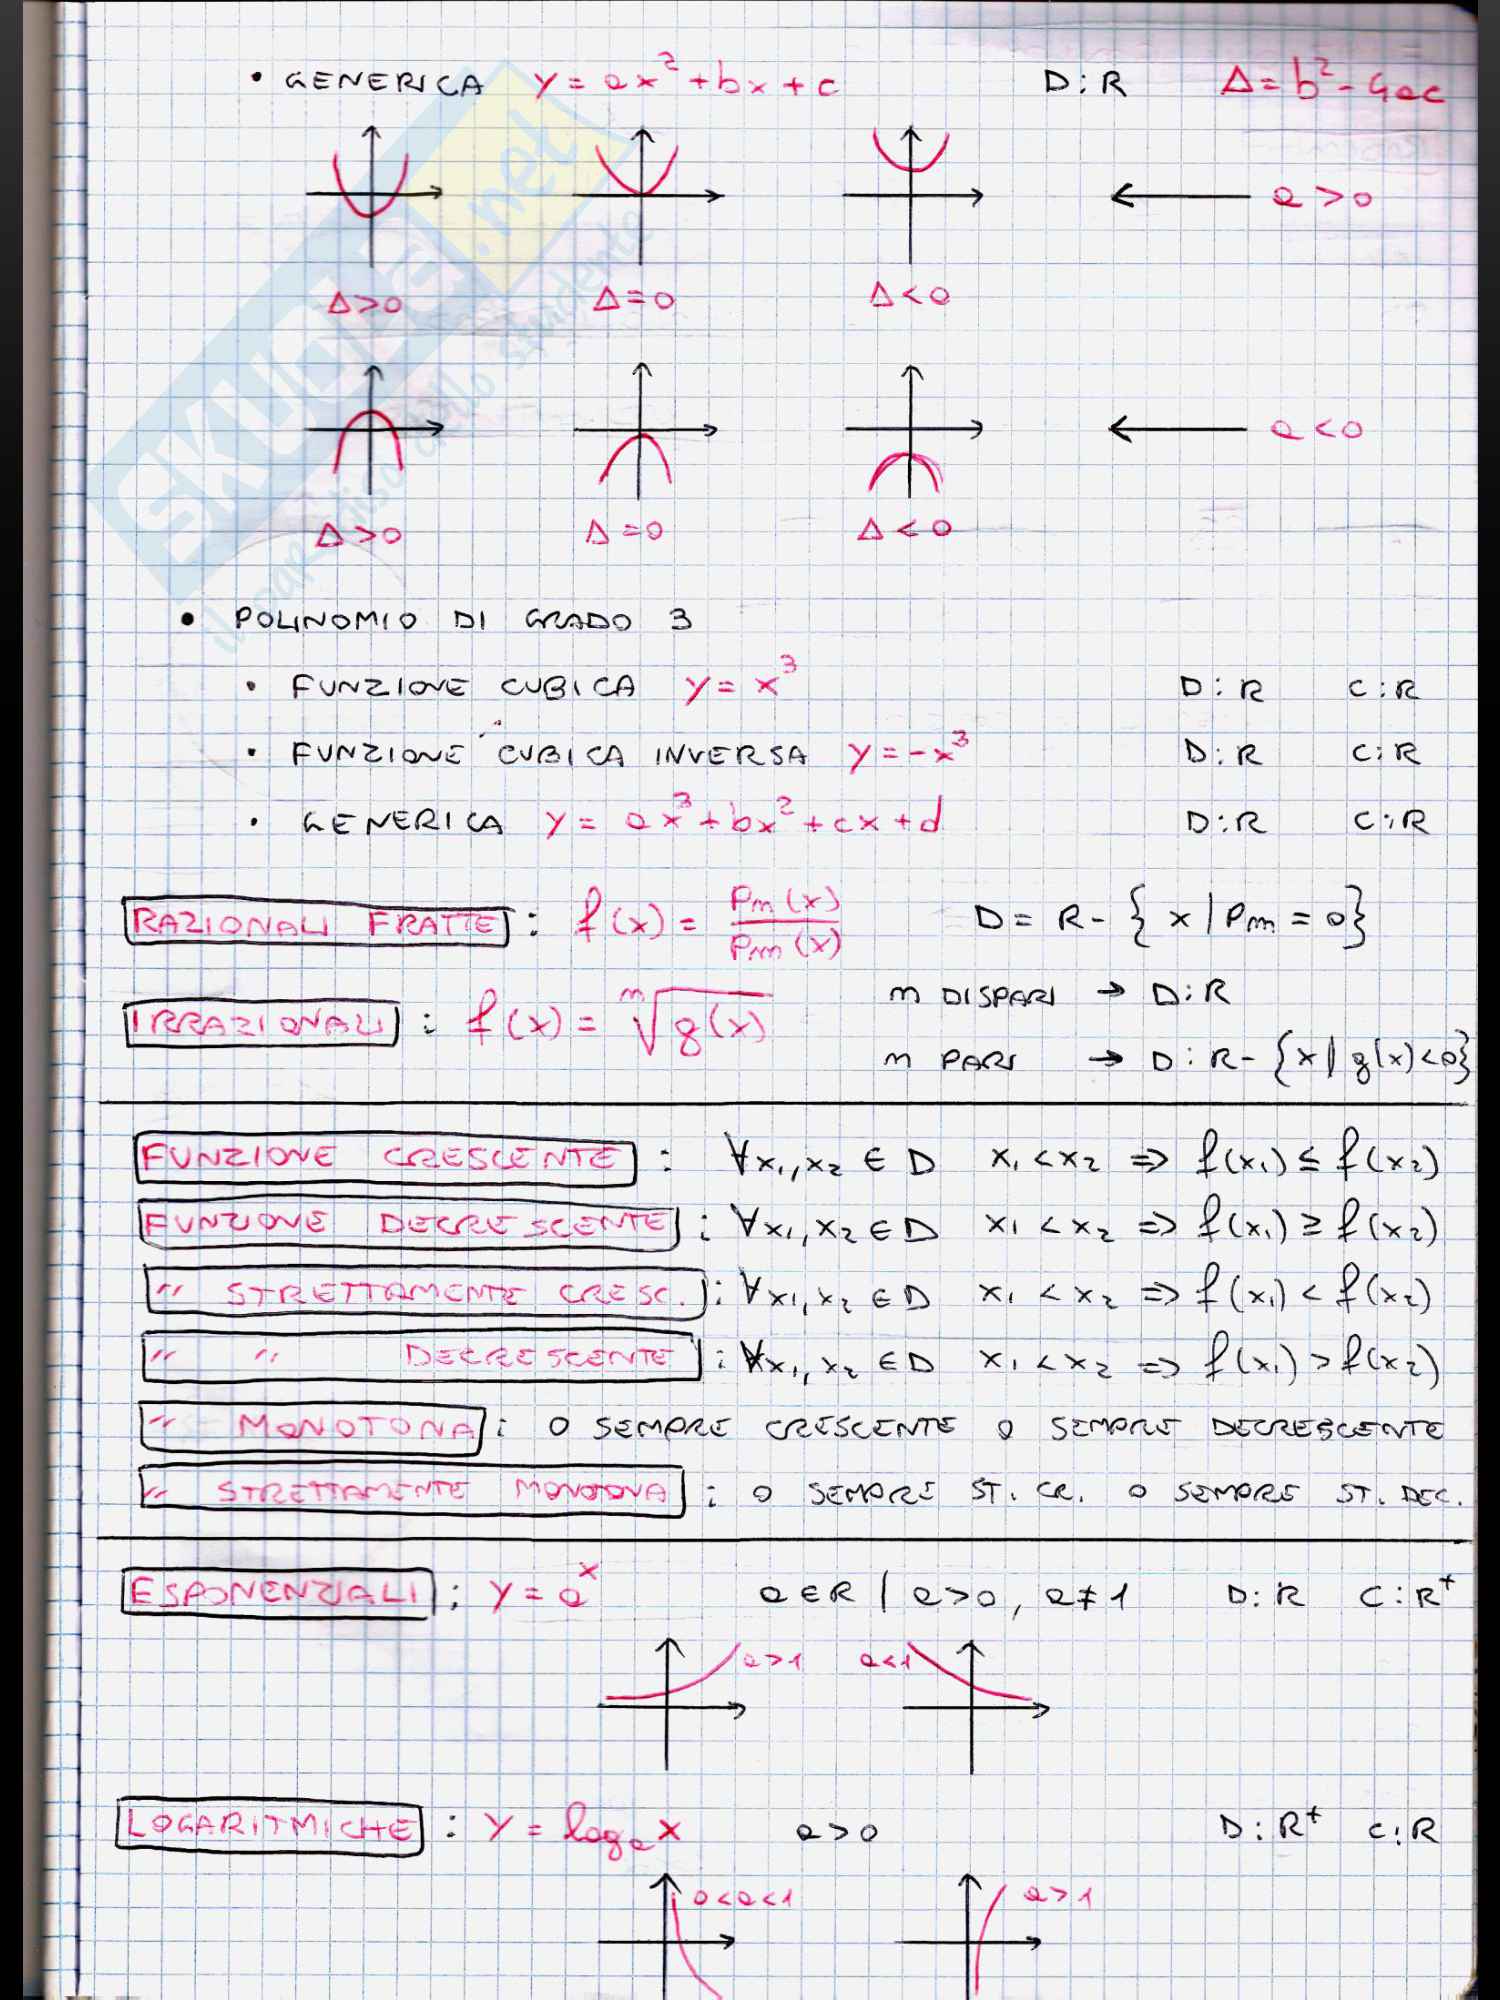 • GENERICA y = ax² + bx + c D: R Δ = b² - 4ac
a > 0
Δ>0 Δ=0 Δ<0
a < 0
Δ>0 Δ=0 Δ<0
• POLINOMIO DI GRADO 3
• FUNZIONE CUBICA y = x³ D: R C: R
• FUNZIONE CUBICA INVERSA y = -x³ D: R C: R
• GENERICA y = ax³ + bx² + cx + d D: R C: R
RAZIONALI FRATTE : f(x) = Pn(x) / Pm(x) D = R - { x | Pm = 0}
IRRAZIONALI : f(x) = ⁿ√g(x) n DISPARI → D: R
n PARI → D: R - {x | g(x)<0}
FUNZIONE CRESCENTE : ∀x₁,x₂ ∈ D x₁ < x₂ ⇒ f(x₁) ≤ f(x₂)
FUNZIONE DECRESCENTE : ∀x₁,x₂ ∈ D x₁ < x₂ ⇒ f(x₁) ≥ f(x₂)
" STRETTAMENTE CRESC. : ∀x₁,x₂ ∈ D x₁ < x₂ ⇒ f(x₁) < f(x₂)
" " DECRESCENTE : ∀x₁,x₂ ∈ D x₁ < x₂ ⇒ f(x₁) > f(x₂)
" MONOTONA : O SEMPRE CRESCENTE O SEMPRE DECRESCENTE
" STRETTAMENTE MONOTONA : O SEMPRE ST. CR. O SEMPRE ST. DEC.
ESPONENZIALI : y = aˣ a ∈ R | a>0, a≠1 D: R C: R⁺
a>1 a<1
LOGARITMICHE : y = logₐ x a>0 D: R⁺ C: R
0<a<1 a>1
SKUOLA.net
il paradiso dello studente